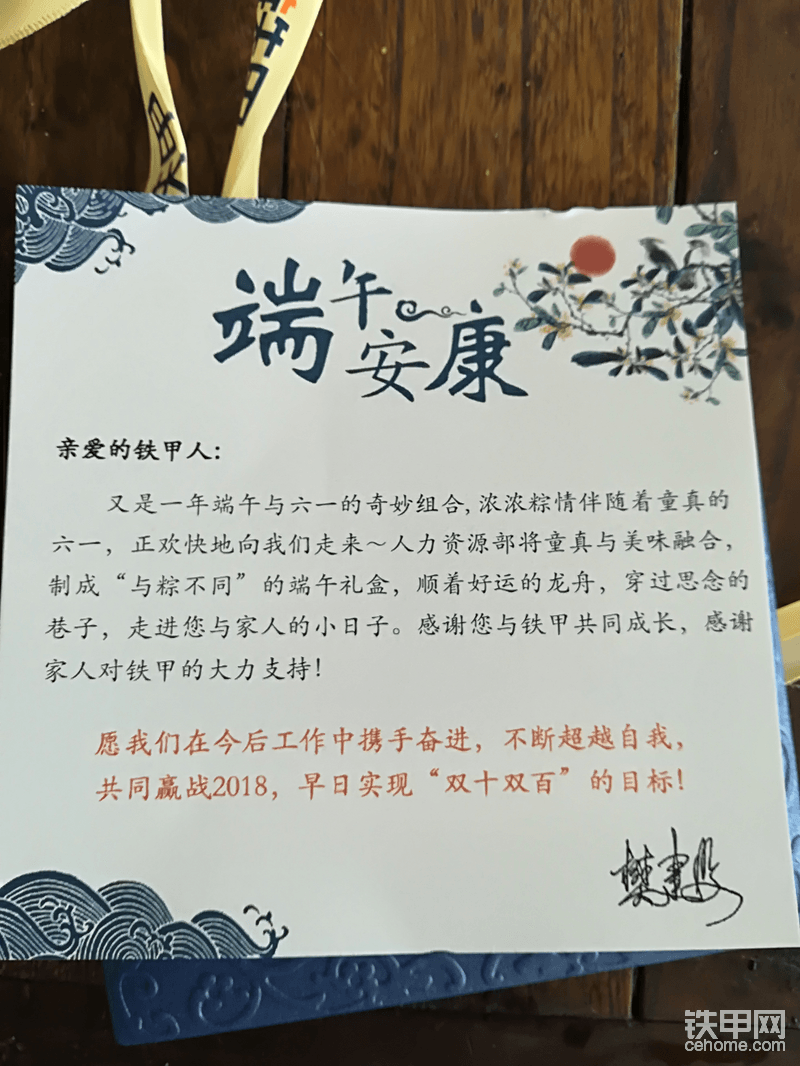 端午安康
亲爱的铁甲人:
又是一年端午与六一的奇妙组合,浓浓粽情伴随着童真的
六一，正欢快地向我们走来～人力资源部将童真与美味融合，
制成“与粽不同”的端午礼盒，顺着好运的龙舟，穿过思念的
巷子，走进您与家人的小日子。感谢您与铁甲共同成长，感谢
家人对铁甲的大力支持!
愿我们在今后工作中携手奋进，不断超越自我，
共同赢战2018，早日实现“双十双百”的目标!
铁甲网
cehome.com